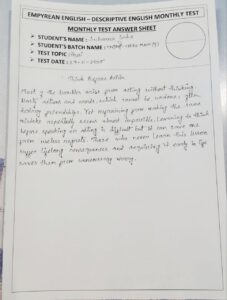 EMPYREAN ENGLISH – DESCRIPTIVE ENGLISH MONTHLY TEST
MONTHLY TEST ANSWER SHEET
➤ STUDENT'S NAME :
➤ STUDENT'S BATCH NAME :
➤ TEST TOPIC :
➤ TEST DATE :
Think Before Action
Most of the troubles arise from acting without thinking.
Hasty actions and words which cannot be undone, often
destroy friendships. Yet refraining from making the same
mistake repeatedly seems almost impossible. Learning to think
before speaking or acting is difficult but it can save one
from useless regrets. Those who never learn this lesson
suffer lifelong consequences and acquiring it early in life
saves them from unnecessary worry.